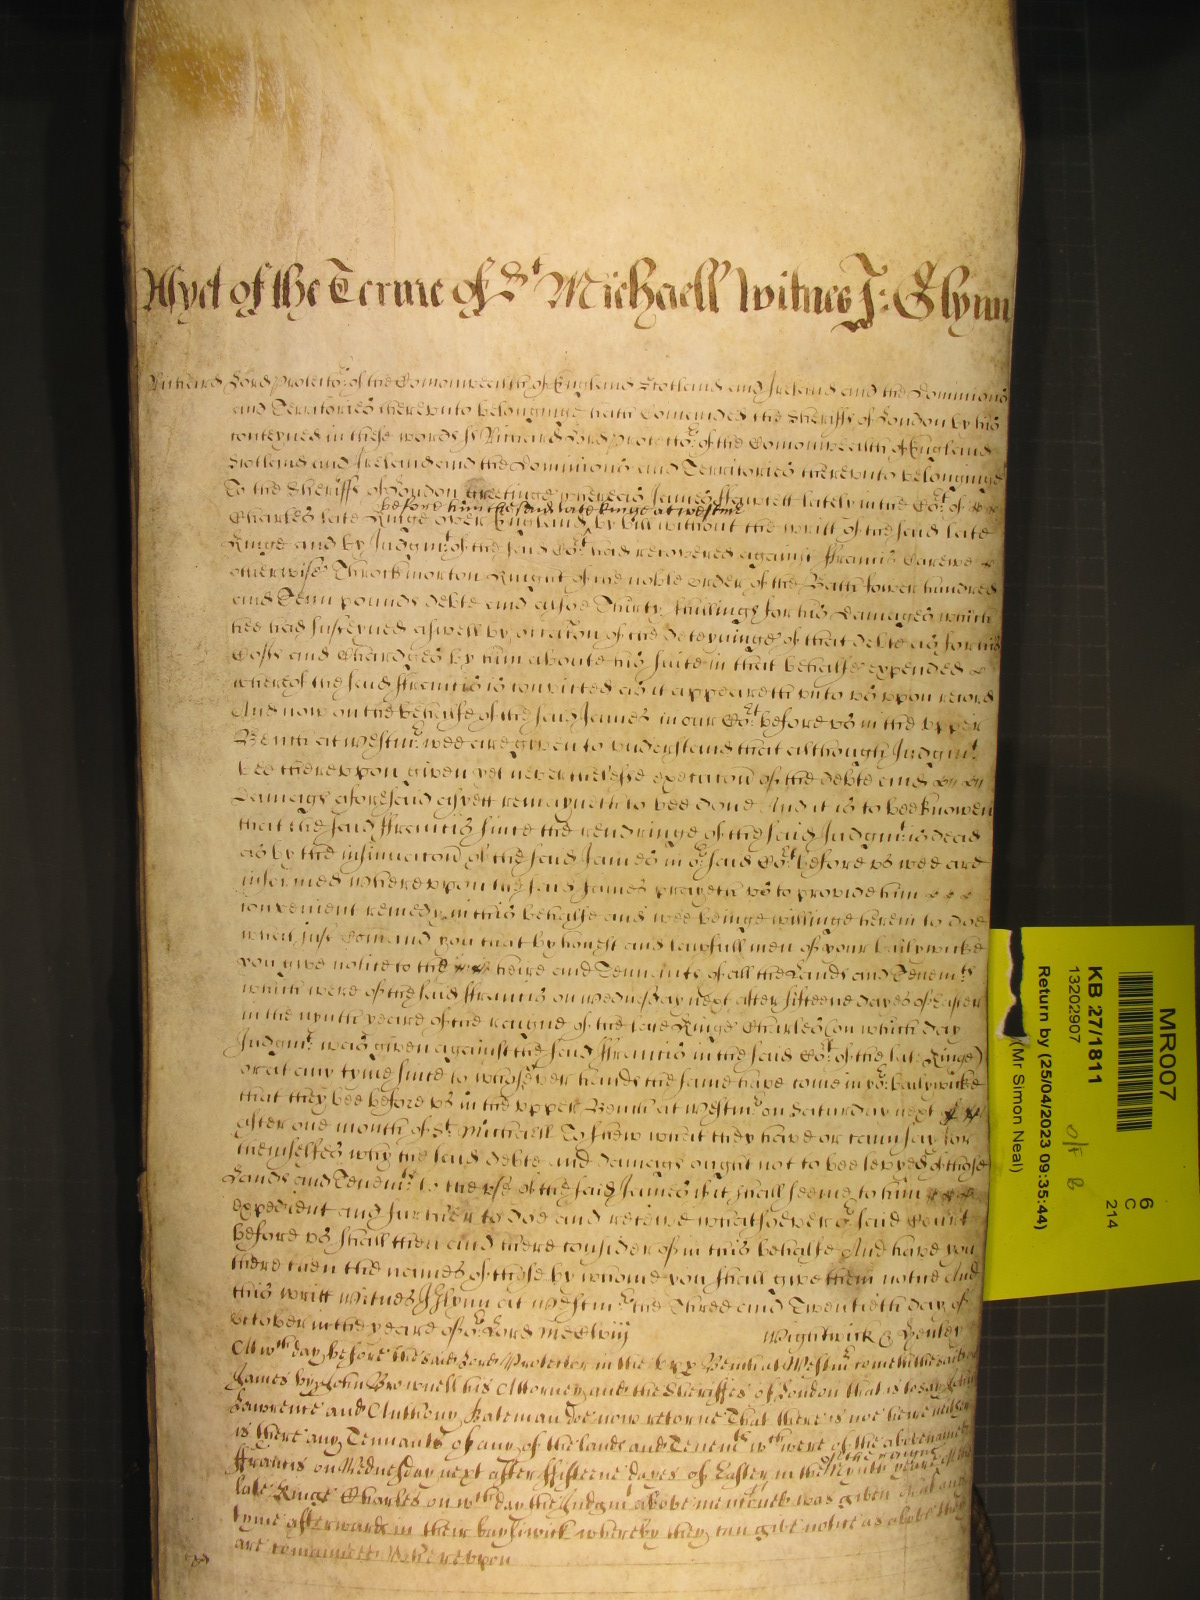 As yet of the Terme of St Michaell Witnes J: Glynn
Richard Lord Protector of the Comonwealth of England Scotland and Ireland and the Dominions
and Territories thereunto belonginge hath Comanded the Sheriffs of London by his
conteyned in these words ss Richard Lord Protector of the Comonwealth of England
Scotland and Ireland and the Dominions and Territories thereunto belonginge
To the Sheriffs of London greetinge whereas James lately in the Cort of
before him the said late kinge at westmr
Charles late Kinge over England by bill without the writt of the said late
Kinge and by Judgmt of the said Cort had recovered against ffrancis Carewe
otherwise Throckmorton Knight of the noble order of the Bath fower hundred
and Tenn pounds debte and alsoe Thirty shillings for his Damages which
hee had susteyned aswell by occacon of the deteyninge of that debte as for his
Costs and Chardges by him aboute his suite in that behalfe expended
whereof the said ffrancis is convicted as it appeareth unto us uppon record
And now on the behalfe of the said James in our Cort before us in the upper
Bench at westmr wee are given to understand that although Judgmt
bee thereuppon given yet neverthelesse execucon of the debte and
damags aforesaid as yett remayneth to bee done And it is to bee knowen
that the said ffrancis since the rendringe of the said Judgmt is dead
as by the insinuacon of the said James in or said Cort before us wee are
informed whereuppon the said James prayeth us to provide him
convenient remedy in this behalfe and wee beinge willinge herein to doe
what just Comand you that by honest and lawfull men of your bailywicke
you give notice to the heire and Tennants of all the Lands and Tenemts
which were of the said ffrancis on wednesday next after fifteene dayes of Easter
in the nynth yeare of the raigne of the late Kinge Charles (on which day
Judgmt was given against the said ffrancis in the said Cort of the late Kinge)
or at any tyme since to whosever hands the same have come in yor bailywicke
that they bee before us in the upper Bench at westmr on Saturday next
after one month of St Michaell To shew what they have or can say for
themselfes why the said debte and damags ought not to bee levyed of those
Lands and Tenemts to the use of the said James if it shall seeme to him
expedient and further to doe and receive whatsoever or said Court
before us shall then and there consider of in this behalfe And have you
there then the names of those by whome you shall give them notice And
this writt Witnes J Glynn at westmr the Three and Twentieth day of
October in the yeare of or Lord Mdclviij Wightwick & Henley
At wch day before the said Lord Protector in the upp Bench at Westmr cometh the said
James by John Brownell his Attorney and the Sheriffes of London that is to say John
Lawrence and Anthony Bateman doe now retorne That there is not heire neither
is there any Tennants of any of the lands and Tenemts wch were of the abovenamed
ffrancis on Wednesday next after ffifteene dayes of Easter in the Nynth yeare of the
of the raigne
late Kinge Charles on wch day the Judgmt above menconed was given or at any
tyme afterwards in their bayliwick whereby they can give notice as above they
are comaunded Whereupon
MR007
KB 27/1811
13202907
Return by (25/04/2023 09:35:44)
(Mr Simon Neal)
6
C
214